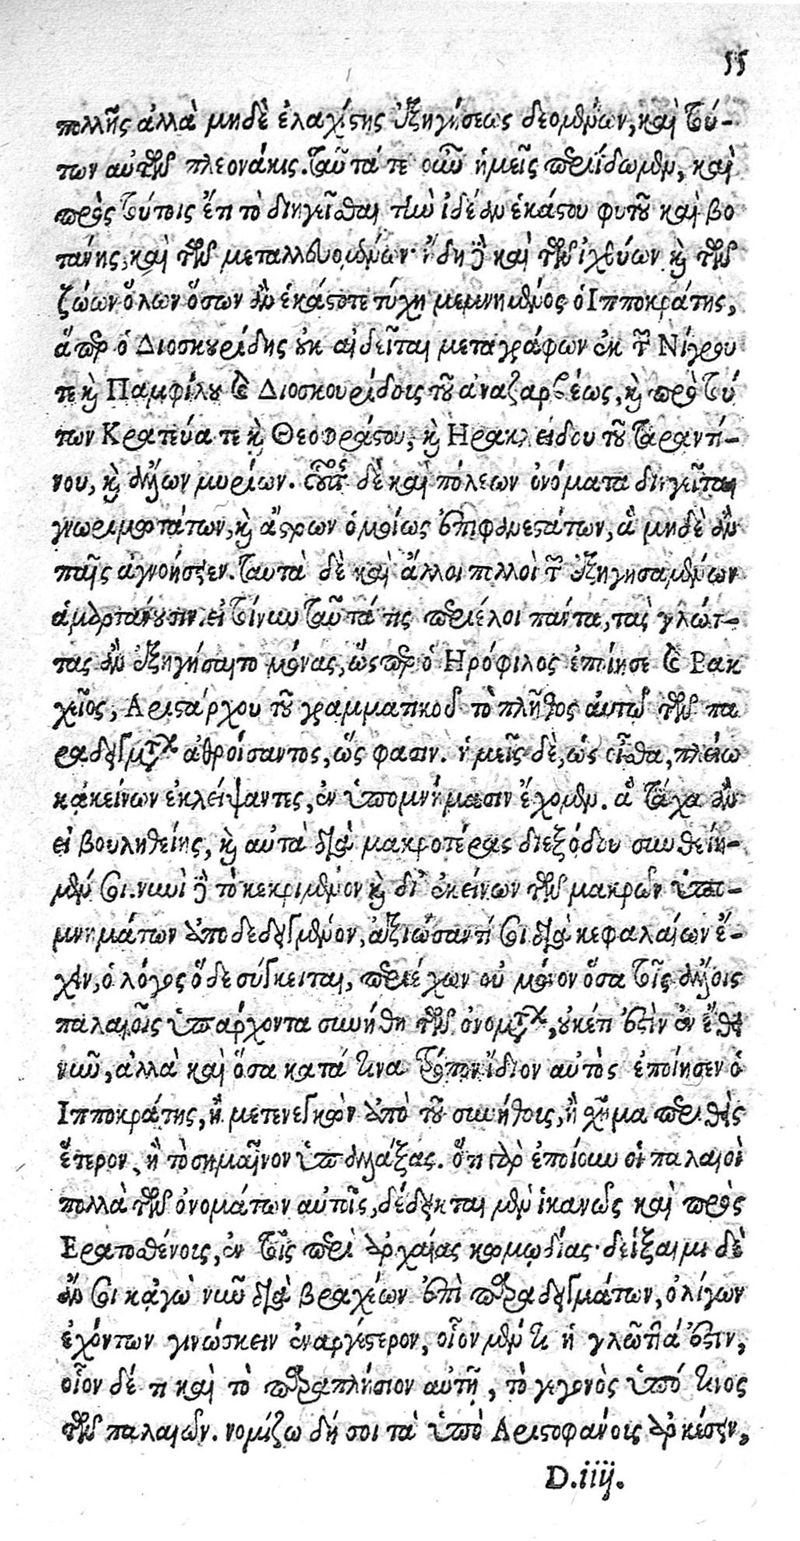 55
πολλῆς ἀλλὰ μηδὲ ἐλαχίστης ἐξηγήσεως δεομένων, καὶ τού-
των αὐτῶν πλεονάκις. ταῦτά τε οὖν ἡμεῖς περιίδωμεν, καὶ
πρὸς τούτοις ἔτι τὸ διηγεῖσθαι τὴν ἰδέαν ἑκάστου φυτοῦ καὶ βο
τάνης, καὶ τῶν μεταλλευομένων· ἤδη δὲ καὶ τῶν ἰχθύων καὶ τῶν
ζώων ὅλων ὅσων ἂν ἑκάστοτε τύχῃ μεμνημένος ὁ Ἱπποκράτης,
ἅπερ ὁ Διοσκουρίδης οὐκ αἰδεῖται μεταγράφων ἐκ τῶν Νίγρου
τε καὶ Παμφίλου καὶ Διοσκουρίδοις τοῦ ἀναζαρβέως, καὶ πρὸ τού
των Κρατεύα τε καὶ Θεοφράστου, καὶ Ἡρακλείδου τοῦ ταραντί-
νου, καὶ ἄλλων μυρίων. οὗτος δὲ καὶ πόλεων ὀνόματα διηγεῖται
γνωριμοτάτων, καὶ ἄστρων ὁμοίως ἐπιφανεστάτων, ἃ μηδὲ ἂν
παῖς ἀγνοήσειεν. ταυτὰ δὲ καὶ ἄλλοι πολλοὶ τῶν ἐξηγησαμένων
ἁμαρτάνουσιν. εἰ τοίνυν ταῦτά τις περιέλοι πάντα, τὰς γλώτ-
τας ἂν ἐξηγήσαιτο μόνας, ὥσπερ ὁ Ἡρόφιλος ἐποίησε καὶ Βακ
χεῖος, Ἀριστάρχου τοῦ γραμματικοῦ τὸ πλῆθος αὐτῷ τῶν πα
ραδειγμάτων ἀθροίσαντος, ὥς φασιν. ἡμεῖς δὲ, ὡς οἶσθα, πλείω
κἀκείνων ἐκλείψαντες, ἐν ὑπομνήμασιν ἔχομεν. ἃ τάχα ἂν
εἰ βουληθείης, καὶ αὐτὰ διὰ μακροτέρας διεξόδου συνθείη-
μέν σοι. νυνὶ δὲ τὸ κεκριμένον καὶ δι' ἐκείνων τῶν μακρῶν ὑπο-
μνημάτων ἀποδεδειγμένον, ἀξιώσαντί σοι διὰ κεφαλαίων ἔ-
χειν, ὁ λόγος ὅδε σύγκειται, περιέχων οὐ μόνον ὅσα τοῖς ἄλλοις
παλαιοῖς ὑπάρχοντα συνήθη τῶν ὀνομάτων, οὐκέτ' ἐστὶν ἐν ἔθει
νῦν, ἀλλὰ καὶ ὅσα κατά τινα τρόπον ἴδιον αὐτὸς ἐποίησεν ὁ
Ἱπποκράτης, ἢ μετενεγκὼν ἀπὸ τοῦ συνήθοις, ἢ σχῆμα περιθεὶς
ἕτερον, ἢ τὸ σημαῖνον ὑπαλλάξας. ὅτι γὰρ ἐποίουν οἱ παλαιοὶ
πολλὰ τῶν ὀνομάτων αὐτοῖς, δέδεικται μὲν ἱκανῶς καὶ πρὸς
Ἐρατοσθένοις, ἐν τοῖς περὶ ἀρχαίας κωμῳδίας· δείξαιμι δὲ
ἄν σοι κἀγὼ νῦν διὰ βραχέων ἐπὶ παραδειγμάτων, ὀλίγων
ἐχόντων γινώσκειν ἐναργέστερον, οἷον μέν τι ἡ γλῶττά ἐστιν,
οἷον δέ τι καὶ τὸ παραπλήσιον αὐτῇ, τὸ γεγονὸς ὑπό τινος
τῶν παλαιῶν. νομίζω δή σοι τὰ ὑπὸ Ἀριστοφάνοις ἀρκέσειν,
D.iiij.